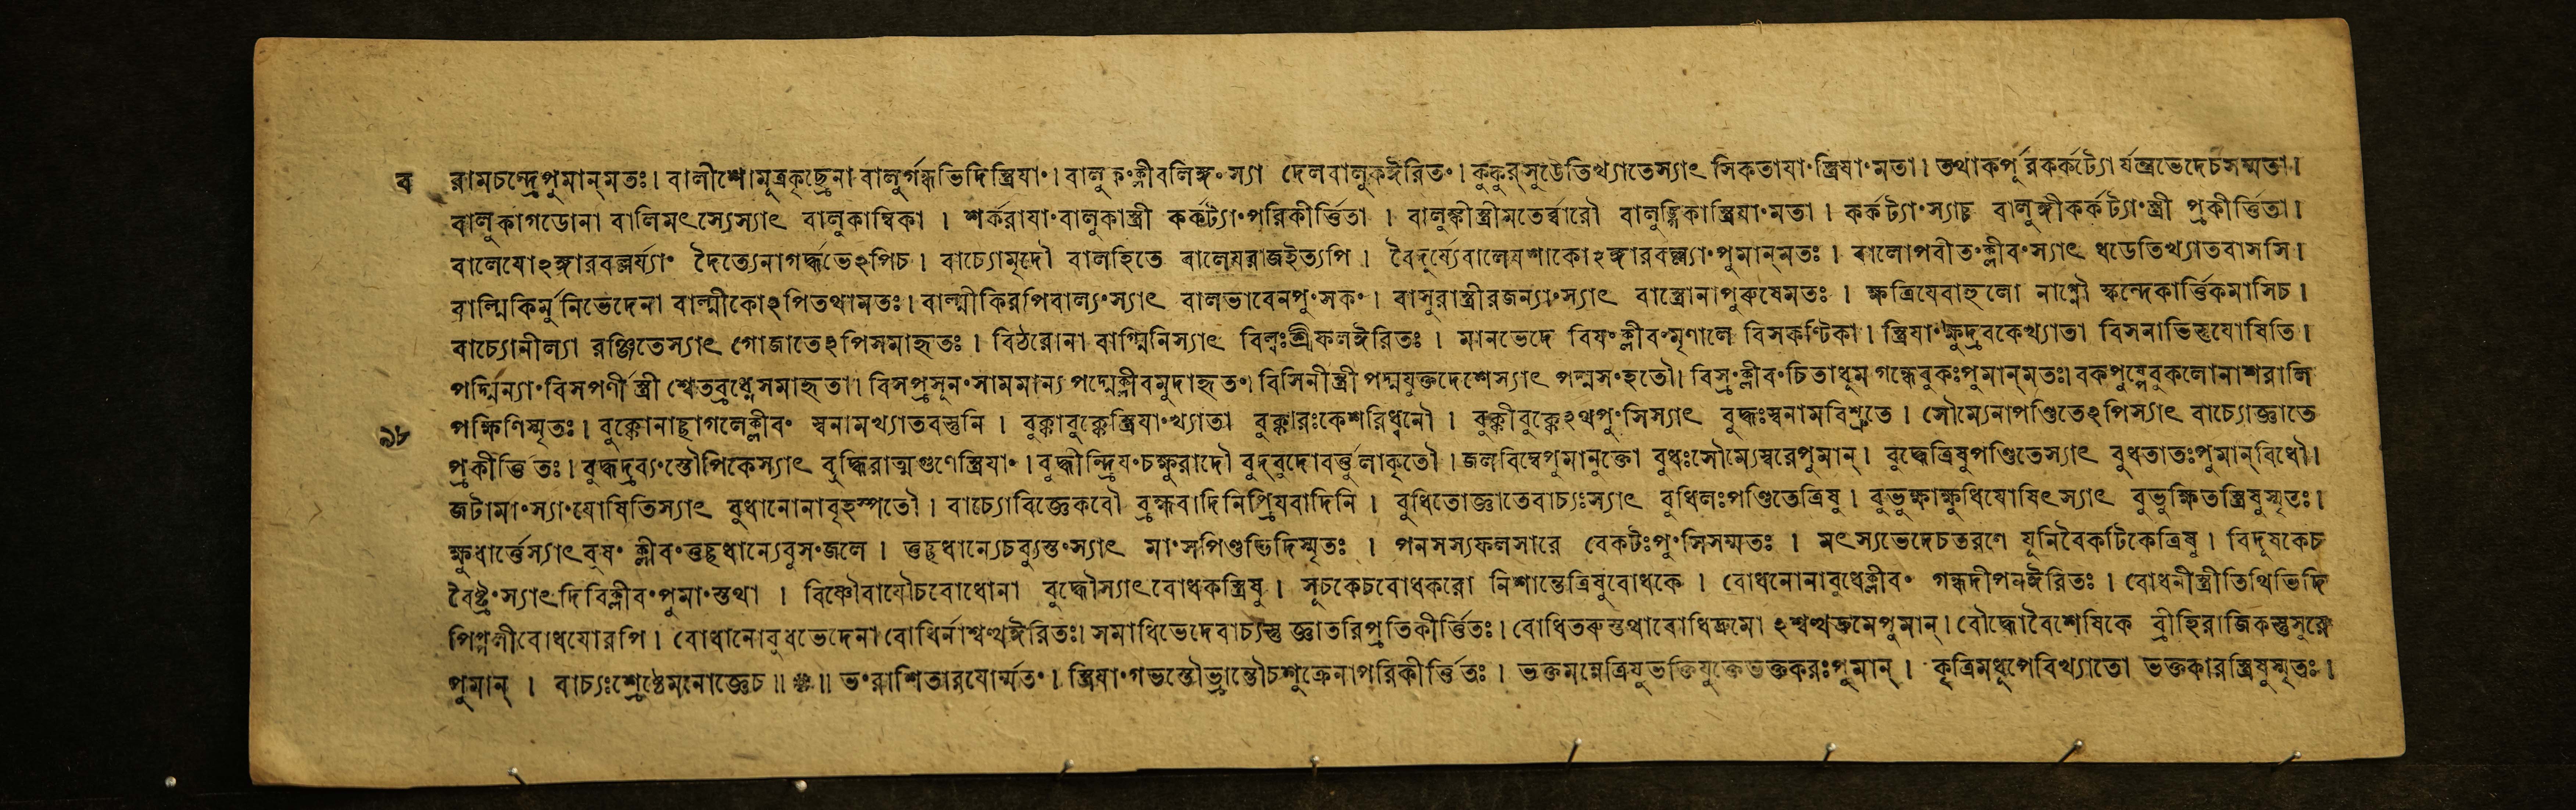 ব রামচন্দ্রেপুমান্মতঃ। বালীশো মূত্রকৃচ্ছ্রেনা বালুর্গন্ধভিদিস্ত্রিযাং। বালুকংক্লীবলিঙ্গংস্যা দেলবালুকঈরিতং। কুকুরসুঙেতিখ্যাতেস্যাৎ সিকতাযাংস্ত্রিযাংমতা। তথাকর্পূরকর্কট্যো র্যন্ত্রভেদেচসম্মতা।
বালুকাগডোনা বালিমৎস্যেস্যাৎ বালুকাম্বিকা । শর্করাযাংবালুকাস্ত্রী কর্কট্যাংপরিকীর্ত্তিতা । বালুঙ্কীস্ত্রীমতের্ব্বারৌ বালুঙ্গিকাস্ত্রিযাংমতা। কর্কট্যাংস্যাচ্চ বালুঙ্গীকর্কট্যাংস্ত্রী প্রকীর্ত্তিতা।
বালেযোঽঙ্গারবল্লর্য্যাং দৈত্যেনাগর্দ্ধভেঽপিচ। বাচ্যোমৃদৌ বালহিতে বালেযরাজইত্যপি । বৈদূর্য্যেবালেযশাকোঽঙ্গারবল্ল্যাংপুমান্মতঃ । বালোপবীতংক্লীবংস্যাৎ ধডেতিখ্যাতবাসসি।
বাল্মিকির্মুনিভেদেনা বাল্মীকোঽপিতথামতঃ। বাল্মীকিরপিবাল্যংস্যাৎ বালভাবেনপুংসকং। বাসুরাস্ত্রীরজন্যাংস্যাৎ বাস্ত্রোনাপুরুষেমতঃ । ক্ষত্রিযেবাহুলো নাগ্নৌ স্কন্দেকার্ত্তিকমাসিচ।
বাচ্যোনীল্যা রঞ্জিতেস্যাৎ গোজাতেঽপিসমাহৃতঃ । বিঠরোনা বাগ্মিনিস্যাৎ বিল্বঃশ্রীফলঈরিতঃ । মানভেদে বিষংক্লীবংমৃণালে বিসকণ্টিকা। স্ত্রিযাংক্ষুদ্রবকেখ্যাতা বিসনাভিস্তুযোষিতি।
পদ্মিন্যাংবিসপর্ণী স্ত্রী শ্বেতব্রধ্নেসমাহৃতা। বিসপ্রসূনংসামমান্য পদ্মেক্লীবমুদাহৃতং। বিসিনীস্ত্রী পদ্মযুক্তদেশেস্যাৎ পদ্মসংহতৌ। বিস্রংক্লীবংচিতাধূম গন্ধেবুকঃপুমান্মতঃ। বকপুষ্পেবুকলোনাশরালি
পক্ষিণিস্মৃতঃ। বুক্কোনাচ্ছাগলেক্লীবং স্বনামখ্যাতবস্তুনি । বুক্কাবুক্কেস্ত্রিযাংখ্যাতা বুক্কারঃকেশরিধ্বনৌ । বুক্কীবুক্কেঽথপুংসিস্যাৎ বুদ্ধঃস্বনামবিশ্রুতে । সৌম্যেনাপণ্ডিতেঽপিস্যাৎ বাচ্যোজ্ঞাতে
৯৮ প্রকীর্ত্তিতঃ। বুদ্ধদ্রব্যংস্তৌপিকেস্যাৎ বুদ্ধিরাত্মগুণেস্ত্রিযাং। বুদ্ধীন্দ্রিযংচক্ষুরাদৌ বুদ্বুদোবর্ত্তুলাকৃতৌ । জলবিম্বেপুমানুক্তো বুধঃসৌম্যেস্বরেপুমান্। বুদ্ধেত্রিষুপণ্ডিতেস্যাৎ বুধতাতঃপুমান্বিধৌ।
জটামাংস্যাংযোষিতিস্যাৎ বুধানোনাবৃহস্পতৌ। বাচ্যোবিজ্ঞেকবৌ ব্রহ্মবাদিনিপ্রিযবাদিনি । বুধিতোজ্ঞাতেবাচ্যঃস্যাৎ বুধিলঃপণ্ডিতেত্রিষু। বুভুক্ষাক্ষুধিযোষিৎস্যাৎ বুভুক্ষিতস্ত্রিষুস্মৃতঃ।
ক্ষুধার্ত্তেস্যাৎবুষং ক্লীবংতুচ্ছধান্যেবুসংজলে । তুচ্ছধান্যেচবুস্তংস্যাৎ মাংসপিণ্ডভিদিস্মৃতঃ । পনসস্যফলসারে বেকটঃপুংসিসম্মতঃ । মৎস্যভেদেচতরণে যূনিবৈকটিকেত্রিষু। বিদূষকেচ
বৈষ্ট্রংস্যাৎদিবিক্লীবংপুমাংস্তথা । বিষ্ণৌবাযৌচবোধোনা বুদ্ধৌস্যাৎবোধকস্ত্রিষু। সূচকেচবোধকরো নিশান্তেত্রিষুবোধকে । বোধনোনাবুধেক্লীবং গন্ধদীপনঈরিতঃ । বোধনীস্ত্রীতিথিভিদি
পিপ্পলীবোধযোরপি। বোধানোবুধভেদেনা বোধির্নাশ্বত্থঈরিতঃ। সমাধিভেদেবাচ্যস্তু জ্ঞাতরিপ্রতিকীর্ত্তিতঃ। বোধিতরুস্তথাবোধিদ্রুমো ঽশ্বত্থদ্রুমেপুমান্। বৌদ্ধোবৈশেষিকে ব্রীহিরাজিকস্তুসুরে
পুমান্ । বাচ্যঃশ্রেষ্ঠেমনোজ্ঞেচ॥ ॥ ভংরাশিতারযোর্ম্মতং। স্ত্রিযাংগভস্তৌভ্রান্তৌচশুক্রেনাপরিকীর্ত্তিতঃ । ভক্তমন্নেত্রিষুভক্তিযুক্তেভক্তকরঃপুমান্। কৃত্রিমধূপেবিখ্যাতো ভক্তকারস্ত্রিষুস্মৃতঃ।